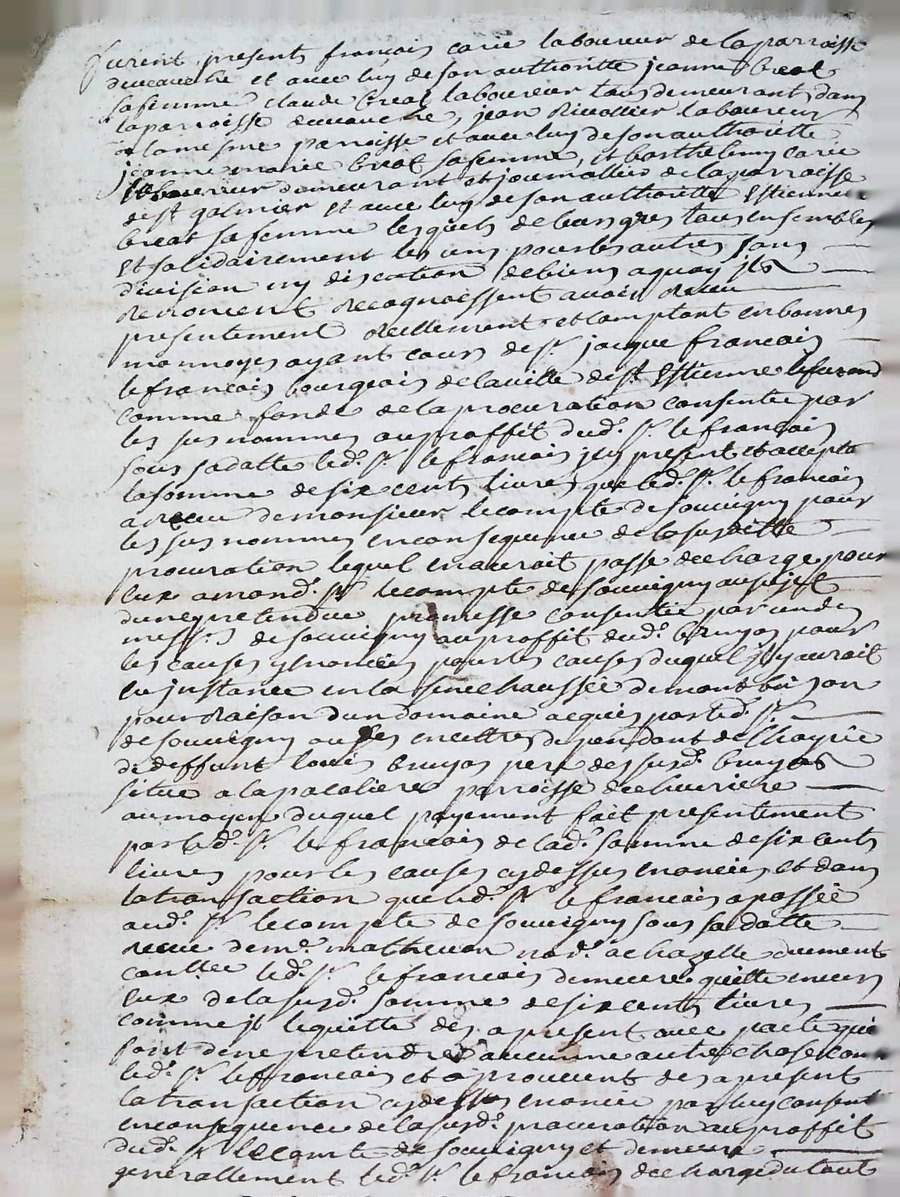 furent present francois carie laboureur de la parroisse
deveauche et avec luy de son authoritte jeanne breat
sa femme claude breat laboureur tous demeurant dans
la parroisse deveauche, jean rivollier laboureur
de la mesme parroisse et avec luy de son authoritte
jeanne marie breat sa femme, et barthelemy carie
laboureur demeurant et journallier de la parroisse
de st galmier et avec luy de son authoritte estiennette
breat sa femme lesquels de leurs gres tous ensembles
et solidairement les uns pour les autres sans
division ny discution de biens a quoy ils
renoncent recognoissent avoir receu
presentement reellement et comptant en bonnes
monnoyes ayant cours de sr. jacque francois
le francois bourgeois de la ville de st. estienne le furand
comme fondé de la procuration consentie par
les sus nommes au proffit dud. sr. le francois
sous sa datte led. sr. le francois icy present et acceptant
la somme de six cents livres que led. sr. le francois
a receu de monsieur le compte de souvigny pour
les sus nommes en consequence de la susditte
procuration lequel en auroit passe decharge pour
eux a mond. sr. le compte de souvigny au sujet
d'une pretendue promesse consentie par un de
mess. rs de souvigny au proffit dud. bruyas pour
les causes y enoncées pour les causes duquel il y auroit
eu instance en la senechaussée de montbrison
pour raison d'un domaine acquis par led. sr.
de souvigny dependant de l'hoyrie
de deffunt louis bruyas pere desusd. bruyas
situe a la parroisse de chevriere
au moyen duquel payement fait presentement
par led. sr. le francois de lad. somme de six cents
livres pour les causes cy dessus enoncées et dans
la transaction que led. sr. le francois a passée
aud. sr. le compte de souvigny sous sa datte
receue de me. mathevon nore. a chazelle duement
conllee led. sr. le francois demeure quitte envers
eux de la susd. somme de six cents livres
comme ils le quitte des a present avec pacte qui
font de ne pretendre d'aucunne autre chose contre
led. sr. le francois et aprouvent des a present
la transaction cy dessus enoncée par luy consentie
en consequence de la susd. procuration au proffit
dud. sr. le comte de souvigny et demeure
generallement led. sr. le francois decharge du tout